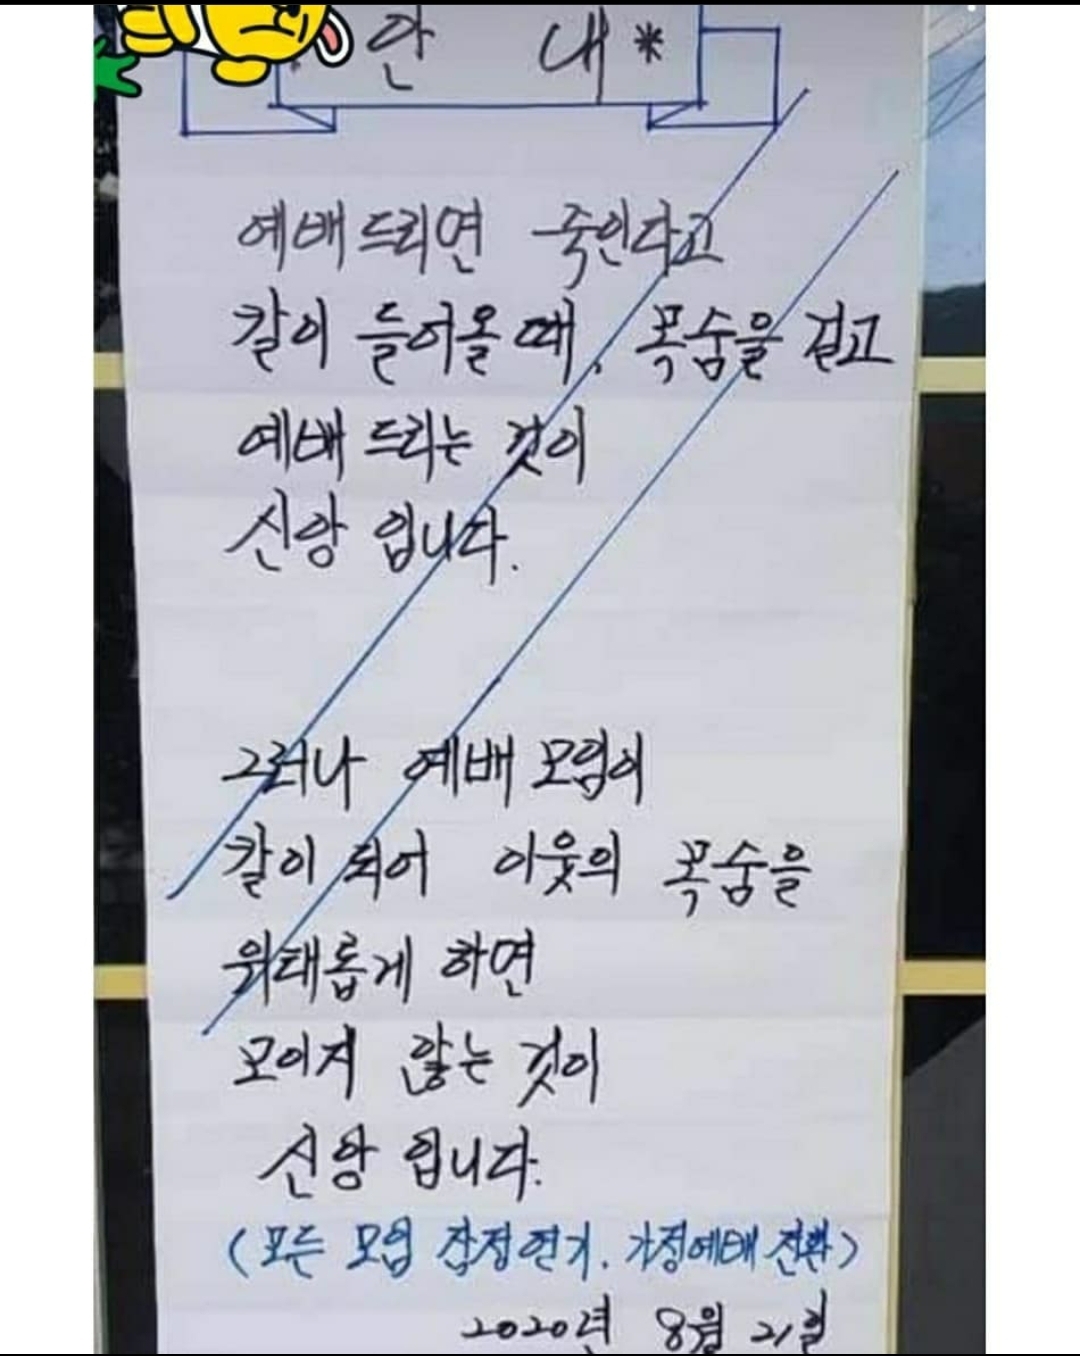 안 내 *
예배 드리면 죽인다고
칼이 들어올 때, 목숨을 걸고
예배 드리는 것이
신앙 입니다.
그러나 예배 모임이
칼이 되어 이웃의 목숨을
위태롭게 하면
모이지 않는 것이
신앙 입니다.
(모든 모임 잠정연기. 가정예배 전환)
2020년 8월 21일